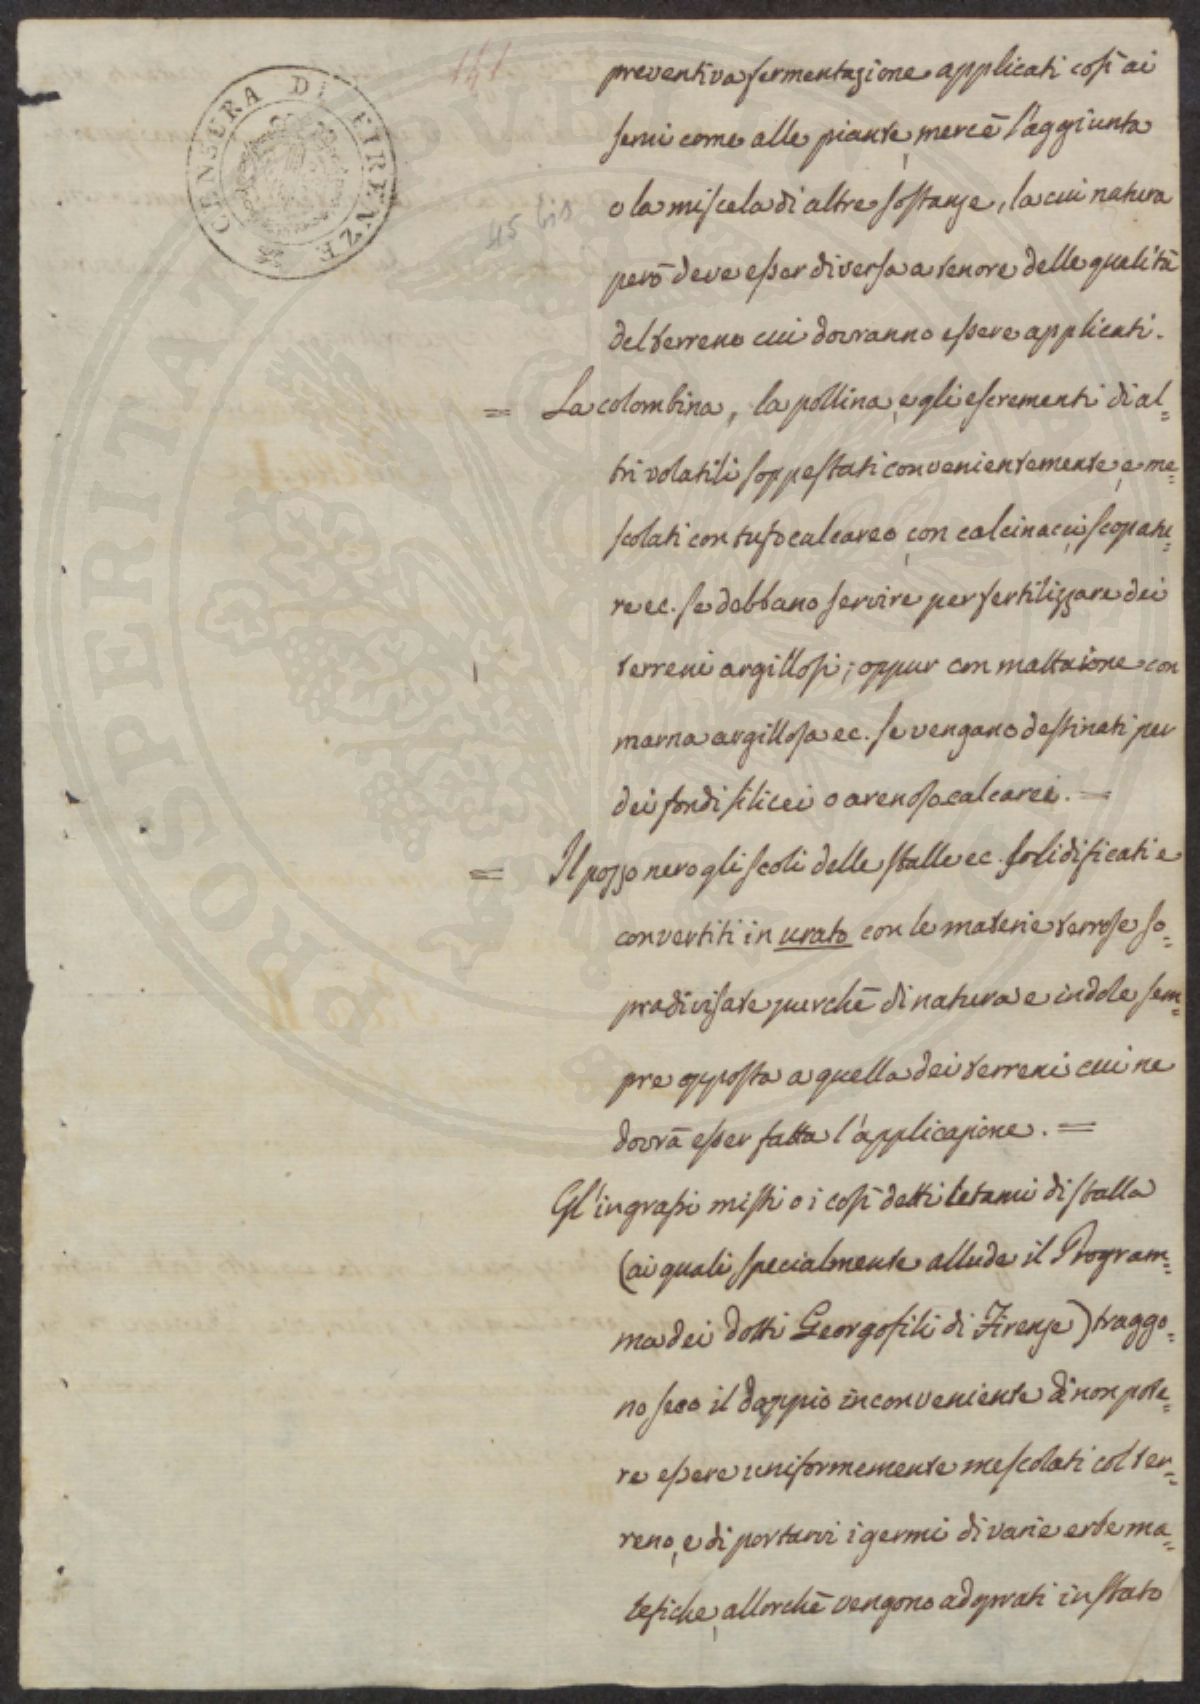 141
CENSURA DI FIRENZE
45 bis
PROSPERITATI PUBLICAE AUGENDAE
preventiva fermentazione applicati così ai
semi come alle piante, mercè l'aggiunta
o la miscela di altre sostanze, la cui natura
però deve esser diversa a tenore delle qualità
del terreno cui dovranno essere applicati.
= La colombina, la pollina, e gli escrementi di al=
tri volatili soppestati convenientemente, e me=
scolati con tufo calcareo, con calcinacci, scopatu=
re ec. se debbano servire per fertilizzare dei
terreni argillosi; oppur con mattaione con
marna argillosa ec. se vengano destinati per
dei fondi silicei o arenoso calcarei. =
= Il pozzo nero gli scoli delle stalle ec. solidificati e
convertiti in urato con le materie terrose so=
pradivisate purchè di natura e indole sem=
pre opposta a quella dei terreni cui ne
dovrà esser fatta l'applicazione. =
Gl'ingrassi misti o i così detti letami di stalla
(ai quali specialmente allude il Program=
ma dei dotti Georgofili di Firenze) traggo=
no seco il doppio inconveniente di non pote=
re essere uniformemente mescolati col ter=
reno, e di portarvi i germi di varie erbe ma=
lefiche, allorchè vengono adoprati in stato